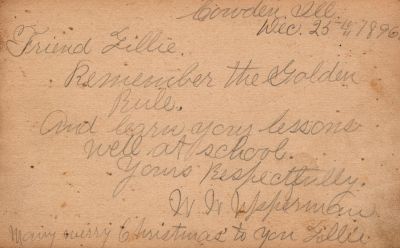 Cowden, Ill.
Dec. 25th, 1896.
Friend Lillie.
Remember the Golden
Rule.
And learn your lessons
well at school.
Yours Respectfully.
W. W. Upperman
Many merry Christmas to you Lillie